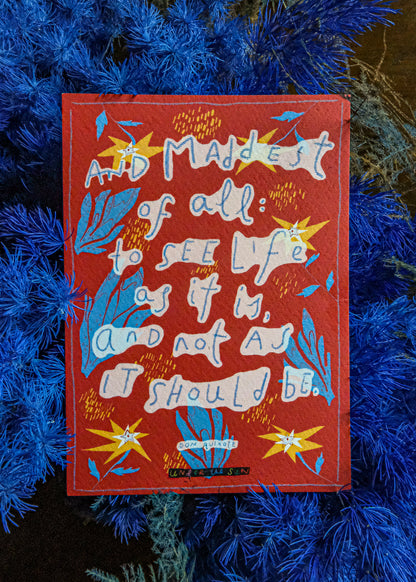 AND MAddEST
of all:
to SEE LIfE
as it is,
and not AS
IT SHOULD BE.
DON QUIXOTE
UNDER THE SUN